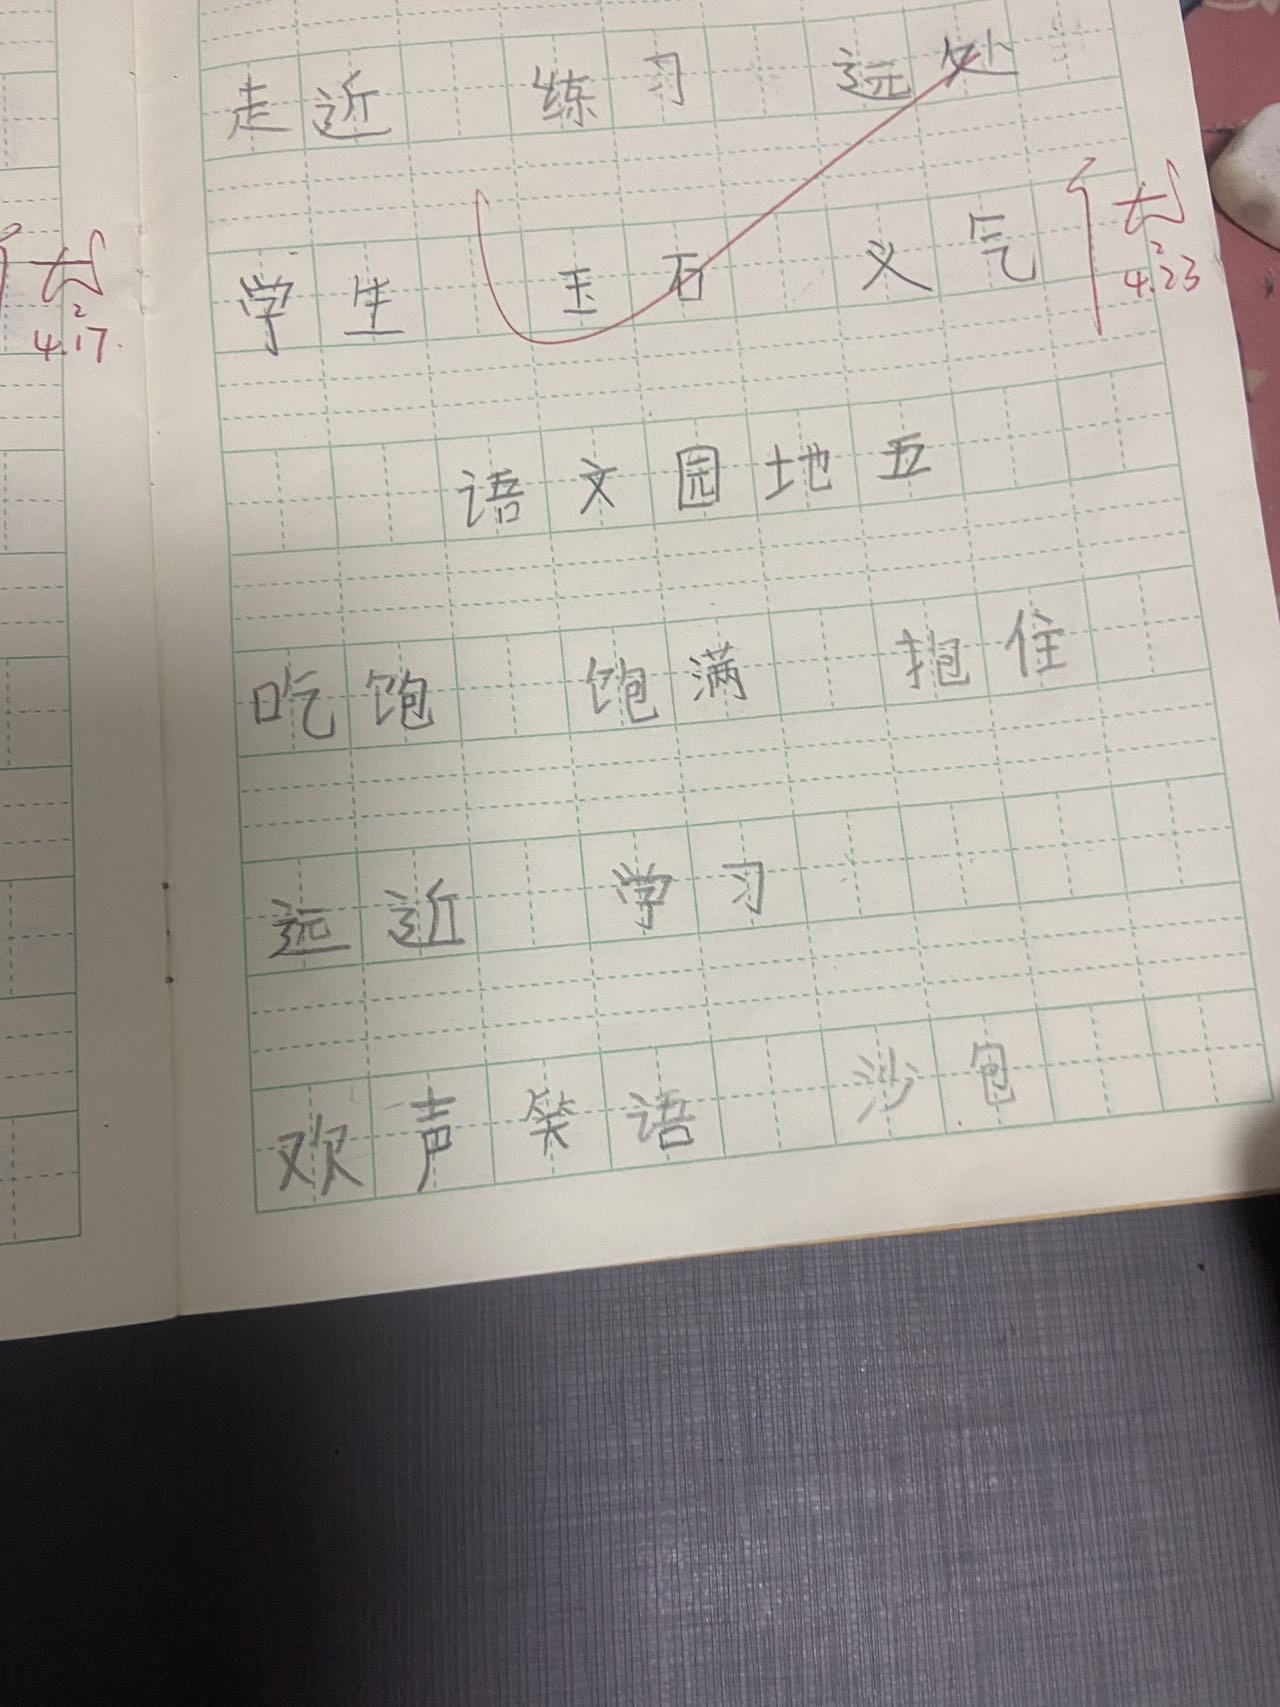 走近 练习 远处
学生 玉石 义气
优
2
4.23
优
2
4.17.
语文园地五
吃饱 饱满 抱住
远近 学习
欢声笑语 沙包